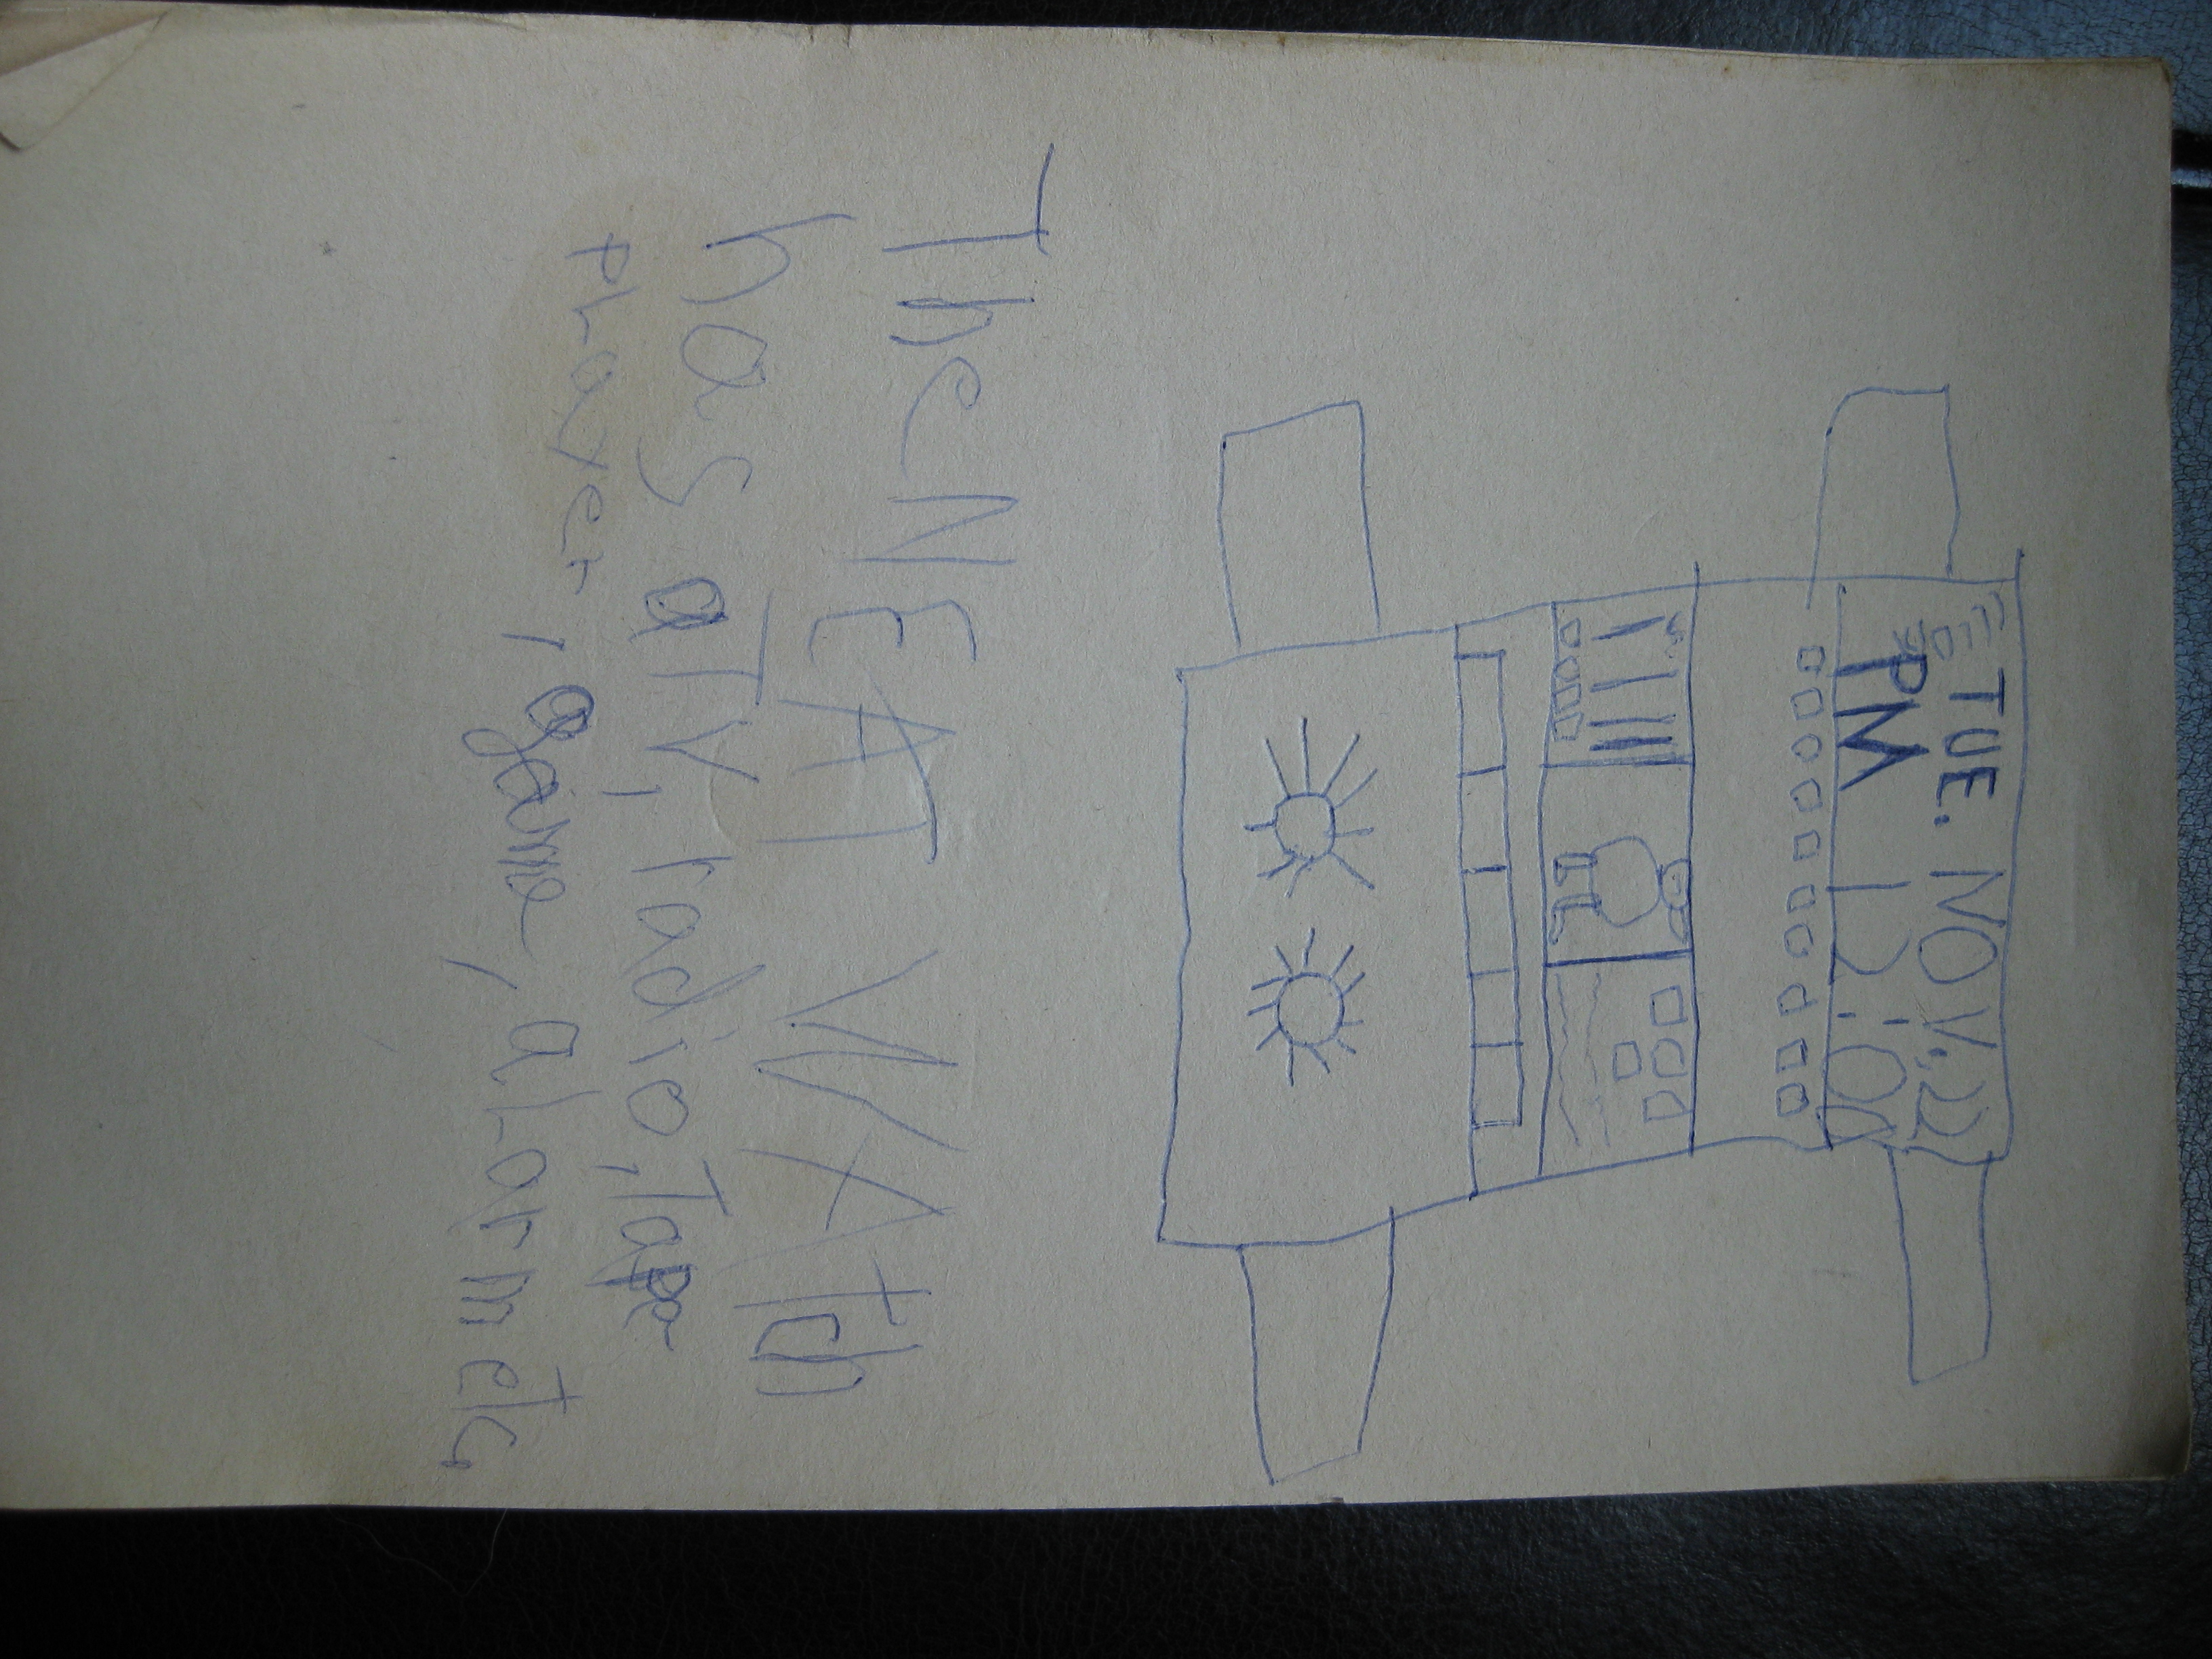 TUE. NOV. 22
PM 12:00
The NEAT WAtch
has a TV, radio, Tape
pLayer, game, aLarm etc